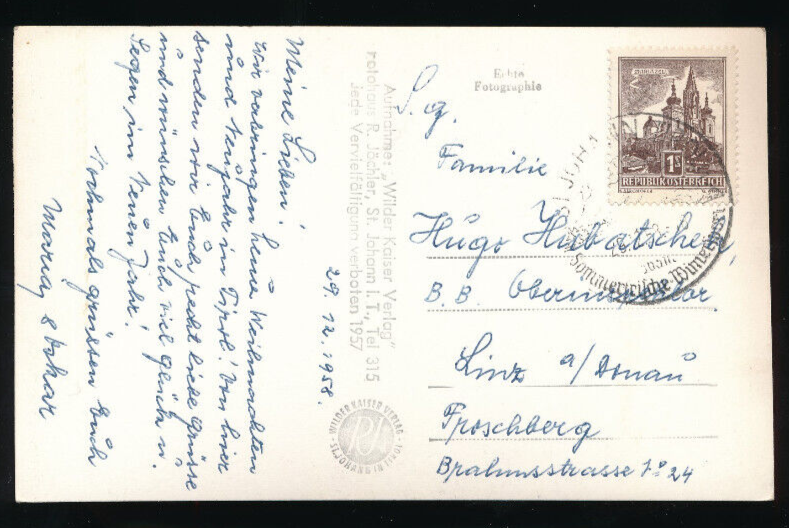 Meine Lieben!
Wir verbringen heuer Weihnachten
und Neujahr in Tirol! Von hier
senden wir Euch recht liebe Grüsse
und wünschen Euch viel Glück u.
Segen im Neuen Jahr!
Nochmals grüssen Euch
Maria, & Oskar
29.12.1958.
Aufnahme: „Wilder Kaiser Verlag"
Fotohaus R. Jöchler, St. Johann i. T., Tel 315
Jede Vervielfältigung verboten 1957
WILDER KAISER VERLAG
ST. JOHANN IN TIROL
Echte
Fotographie
MARIAZELL
1S
REPUBLIK ÖSTERREICH
ST JOHA
Sommerfrische
S. g.
Familie
Hugo Hubatschek,
B. B. Oberinspektor
Linz a/Donau
Froschberg
Brahmsstrasse No 24